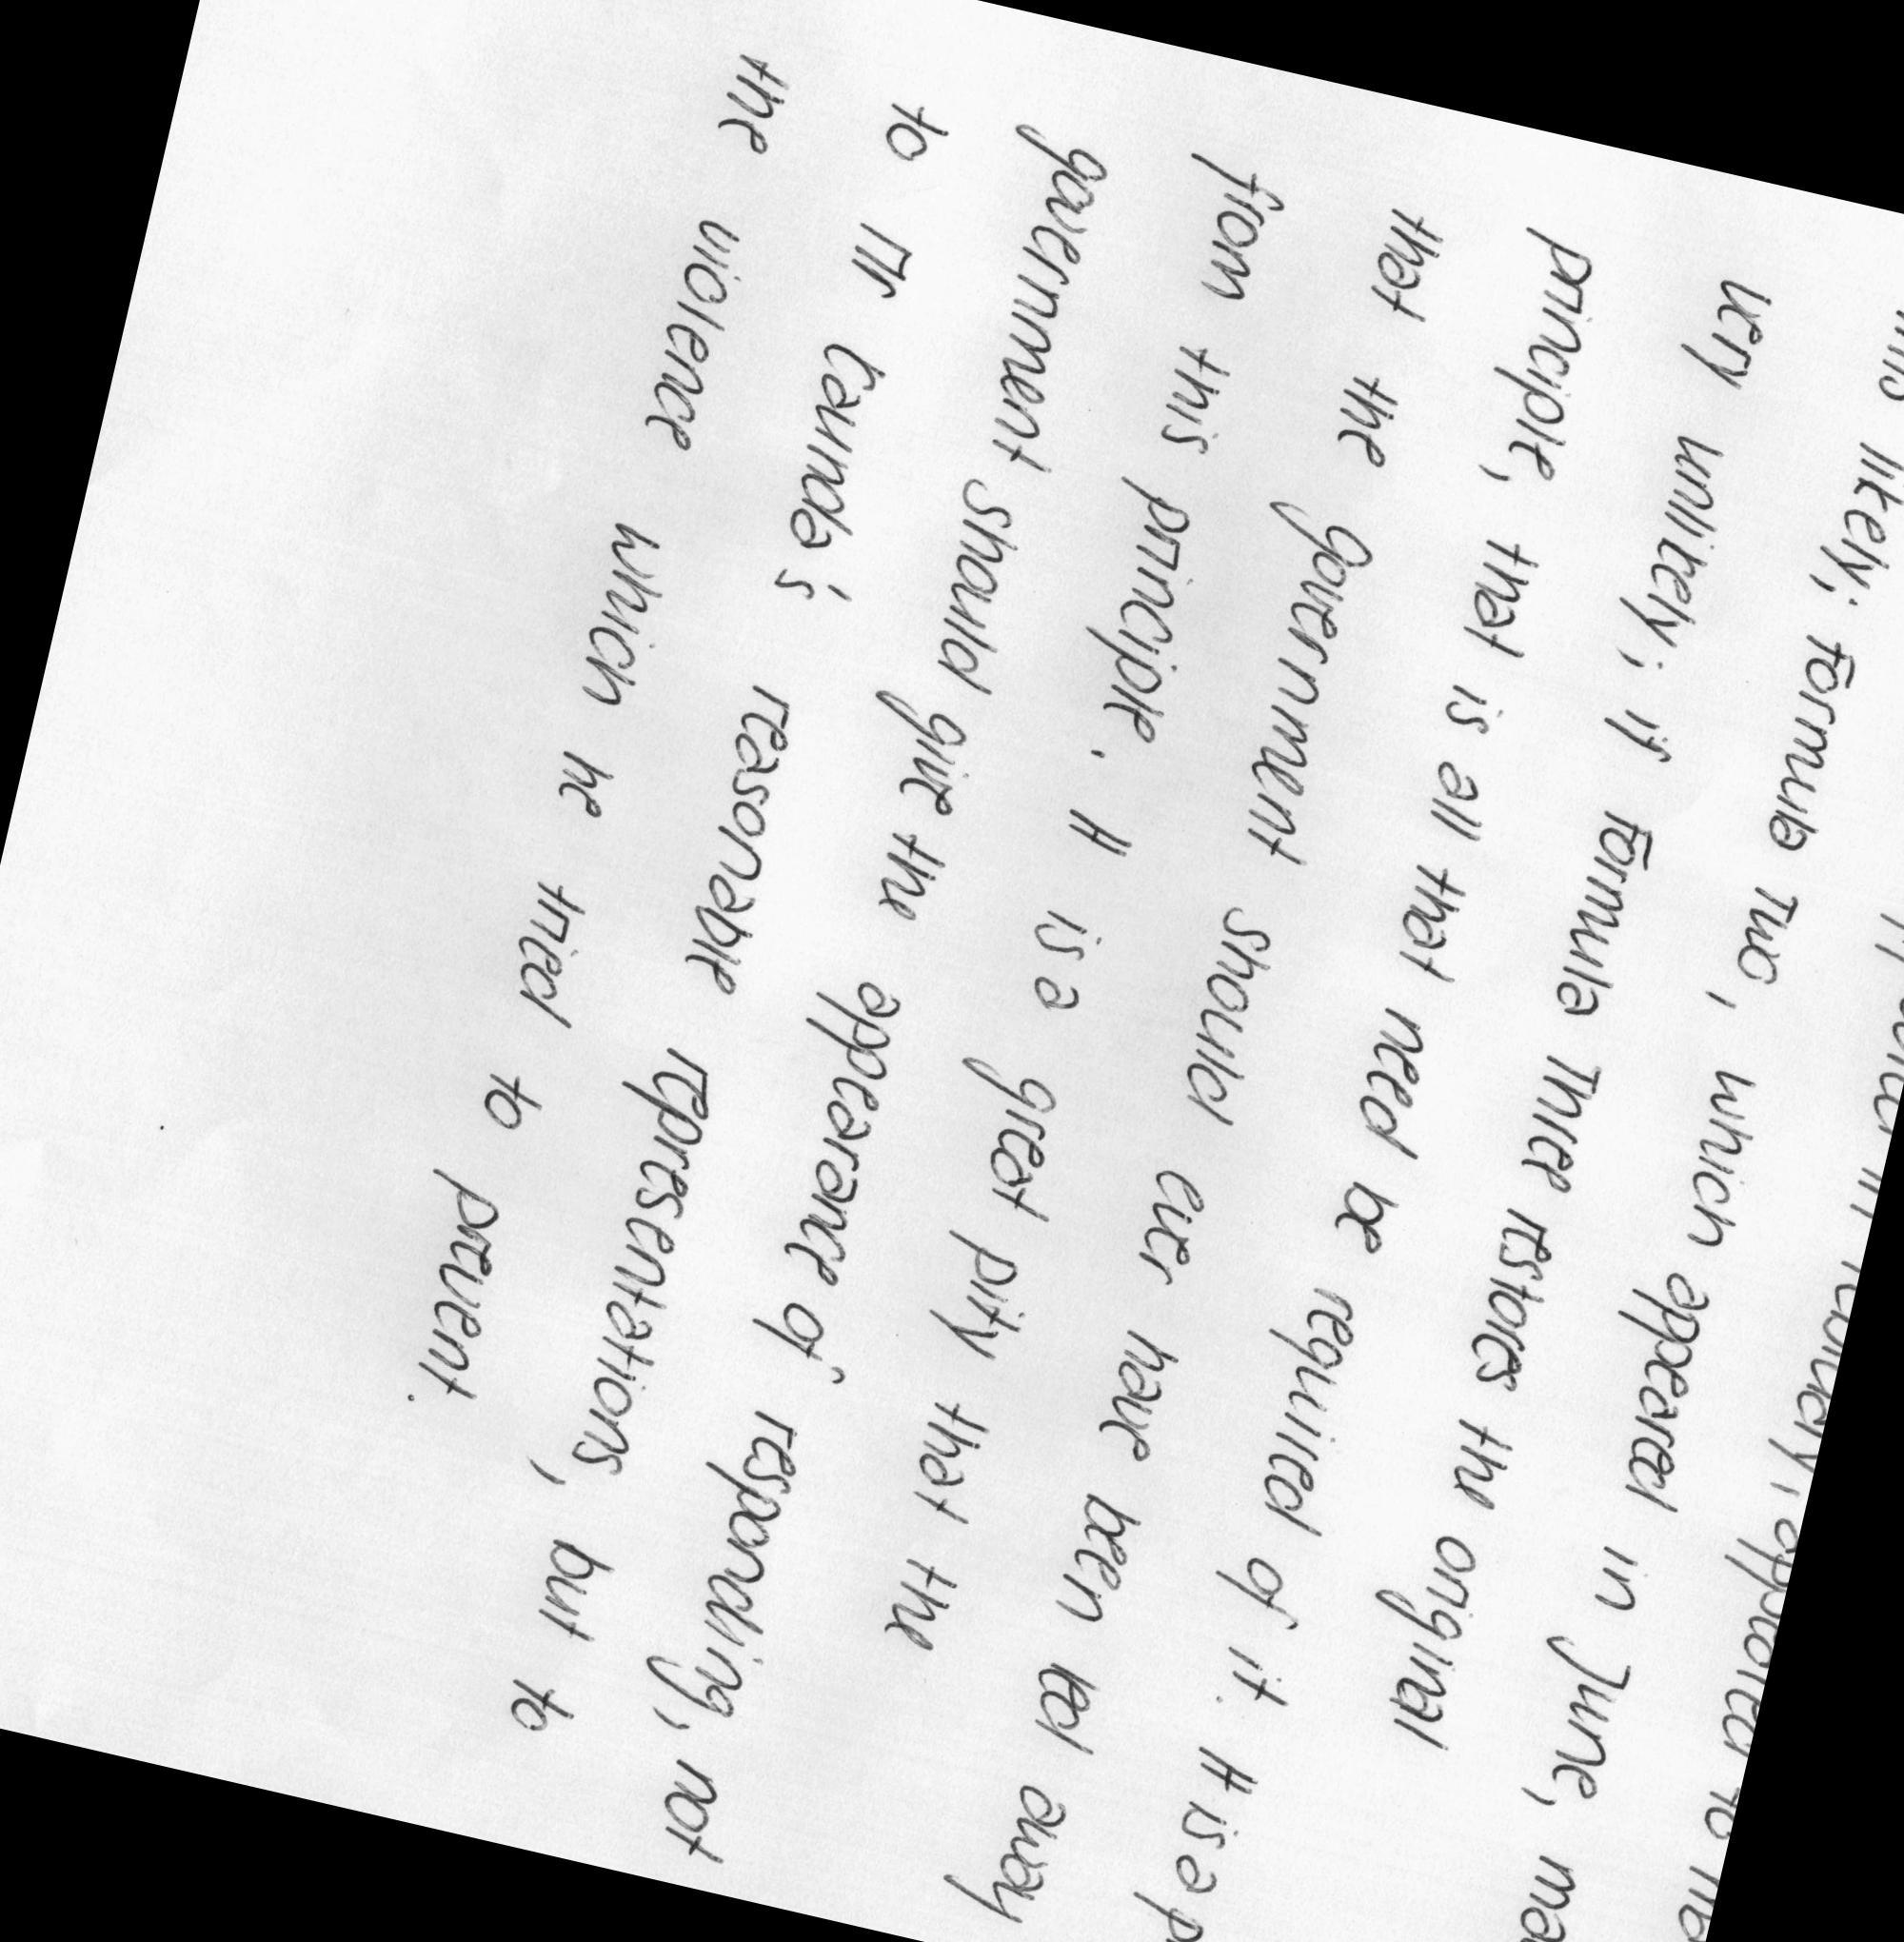 in February, appeared to
this likely; Formula Two, which appeared in June,
very unlikely; if Formula Three restores the original
principle, that is all that need be required of it. It is a
that the government should ever have been led away
from this principle. It is a great pity that the
government should give the appearance of responding, not
to Mr Kaunda's reasonable representations, but to
the violence which he tried to prevent.